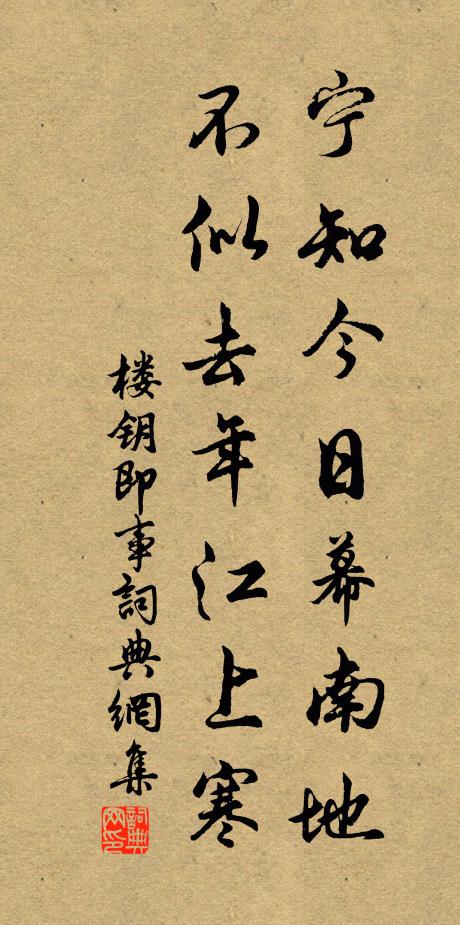 宁知今日幕南地
不似去年江上寒
楼钥即事詞典網集
詞典網印